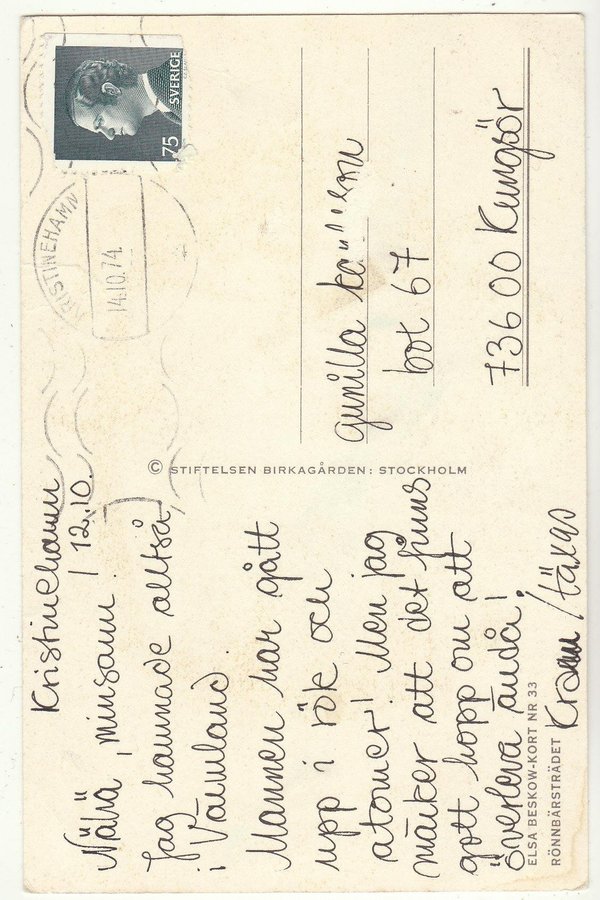 Kristinehamn
12.10.
Nähä, minsann!
Jag hamnade alltså
i Värmland.
Mannen har gått
upp i rök och
atomer! Men jag
märker att det finns
gott hopp om att
överleva ändå!
Kram
ELSA BESKOW-KORT NR 33
RÖNNBÄRSTRÄDET
© STIFTELSEN BIRKAGÅRDEN: STOCKHOLM
SVERIGE
75
KRISTINEHAMN
14.10.74
Gunilla
box 67
736 00 Kungsör